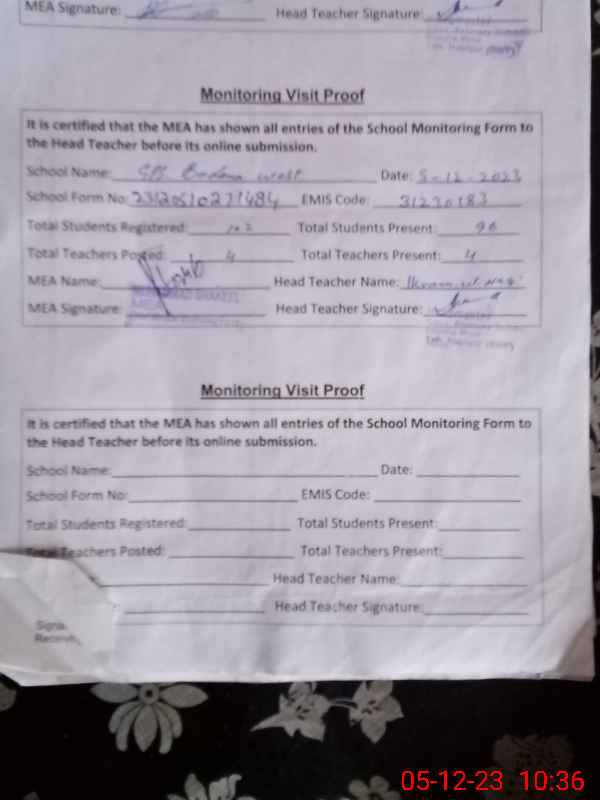 MEA Signature: Head Teacher Signature:
Monitoring Visit Proof
It is certified that the MEA has shown all entries of the School Monitoring Form to
the Head Teacher before its online submission.
School Name: GPS west Date: 5-12-2023
School Form No: EMIS Code: 31230183
Total Students Registered: 102 Total Students Present: 96
Total Teachers Posted: 4 Total Teachers Present: 4
MEA Name: Head Teacher Name:
MEA Signature: Head Teacher Signature:
Monitoring Visit Proof
It is certified that the MEA has shown all entries of the School Monitoring Form to
the Head Teacher before its online submission.
School Name: Date:
School Form No: EMIS Code:
Total Students Registered: Total Students Present:
Total Teachers Posted: Total Teachers Present:
Head Teacher Name:
Head Teacher Signature:
05-12-23 10:36